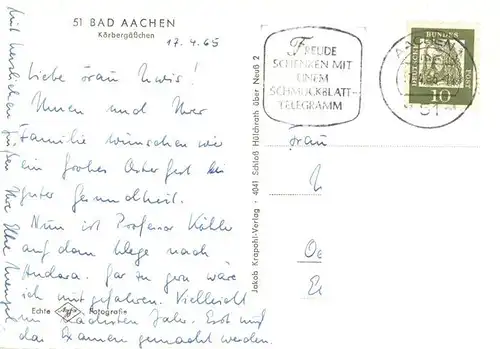 51 BAD AACHEN
Körbergäßchen
17.4.65
Liebe Frau
Ihnen und Ihrer
Familie wünschen wir
ein frohes Osterfest bei
guter Gesundheit.
Nun ist Professor Kölle
auf dem Wege nach
Ankara. Gar zu gern wäre
ich mitgefahren. Vielleicht
im nächsten Jahr. Erst muß
das Examen gemacht werden.
Mit herzlichen
Grüßen Ihre Elke
Echte Agfa Fotografie
Jakob Krapohl-Verlag · 4041 Schloß Hülchrath über Neuß 2
FREUDE
SCHENKEN MIT
EINEM
SCHMUCKBLATT-
TELEGRAMM
AACHEN
51
DEUTSCHE BUNDESPOST
10
Frau